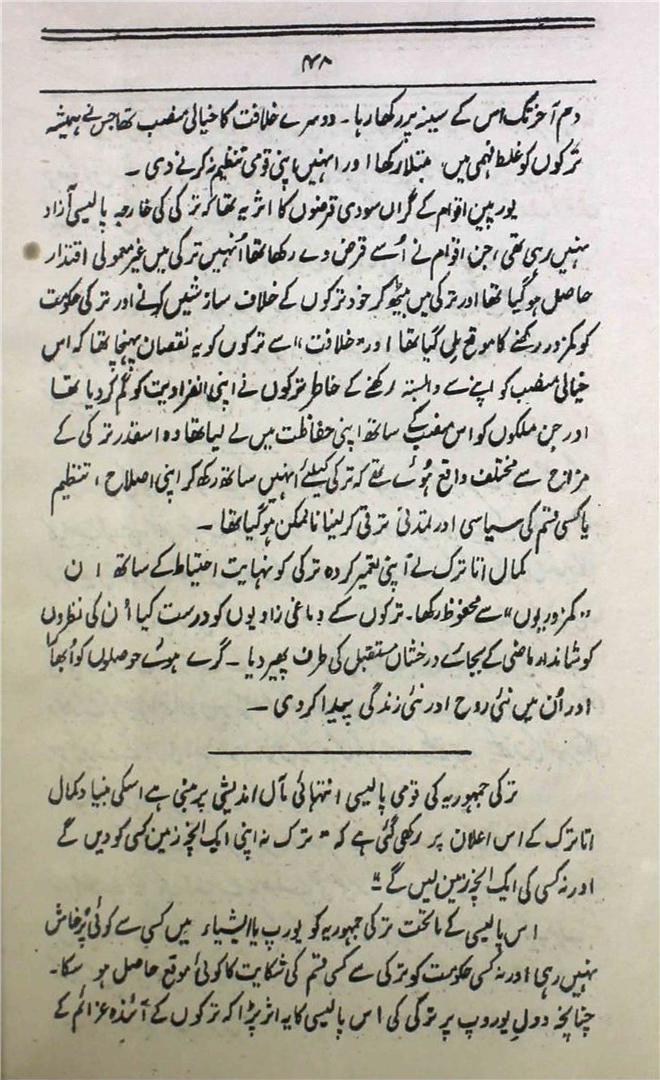 ۴۸
دم آخر تک اس کے سینہ پر رکھا رہا ۔ دوسرے خلافت کا خیالی منصب تھا جس نے ہمیشہ
ترکوں کو غلط فہمی میں مبتلا رکھا اور انہیں اپنی قومی تنظیم نہ کرنے دی ۔
یورپین اقوام کے گراں سودی قرضوں کا اثر یہ تھا کہ ترکی کی خارجہ پالیسی آزاد
نہیں رہی تھی، جن اقوام نے اُسے قرض دے رکھا تھا اُنہیں ترکی میں غیر معمولی اقتدار
حاصل ہو گیا تھا اور ترکی میں بیٹھ کر خود ترکوں کے خلاف سازشیں کرنے اور ترکی حکومت
کو کمزور رکھنے کا موقع مل گیا تھا اور "خلافت" سے ترکوں کو یہ نقصان پہنچا تھا کہ اس
خیالی منصب کو اپنے سے وابستہ رکھنے کے خاطر ترکوں نے اپنی انفرادیت کو گم کر دیا تھا
اور جن ملکوں کو اس منصب کے ساتھ اپنی حفاظت میں لے لیا تھا وہ اسقدر ترکی کے
مزاج سے مختلف واقع ہوُئے تھے کہ ترکی کیلئے اُنہیں ساتھ رکھ کر اپنی اصلاح ، تنظیم
یا کسی قسم کی سیاسی اور تمدنی ترقی کر لینا ناممکن ہو گیا تھا ۔
کمال اتاترک نے اپنی تعمیر کردہ ترکی کو نہایت احتیاط کے ساتھ ان
"کمزوریوں" سے محفوظ رکھا۔ ترکوں کے دماغی زاویوں کو درست کیا اُن کی نظروں
کو شاندار ماضی کے بجائے درخشاں مستقبل کی طرف پھیر دیا ۔ گرے ہوئے حوصلوں کو اُبھارا
اور اُن میں نئی روح اور نئی زندگی پیدا کر دی ۔
ترکی جمہوریہ کی قومی پالیسی انتہائی مآل اندیشی پر مبنی ہے اسکی بنیاد کمال
اتاترک کے اس اعلان پر رکھی گئی ہے کہ " ترک نہ اپنی ایک انچ زمین کسی کو دیں گے
اور نہ کسی کی ایک انچ زمین لیں گے "
اس پالیسی کے ماتحت ترکی جمہوریہ کو یورپ یا ایشیاء میں کسی سے کوئی پُرخاش
نہیں رہی اور نہ کسی حکومت کو ترکی سے کسی قسم کی شکایت کا کوئی موقع حاصل ہو سکا۔
چنانچہ دول یوروپ پر ترکی کی اس پالیسی کا یہ اثر پڑا کہ ترکوں کے آئندہ عزائم کے